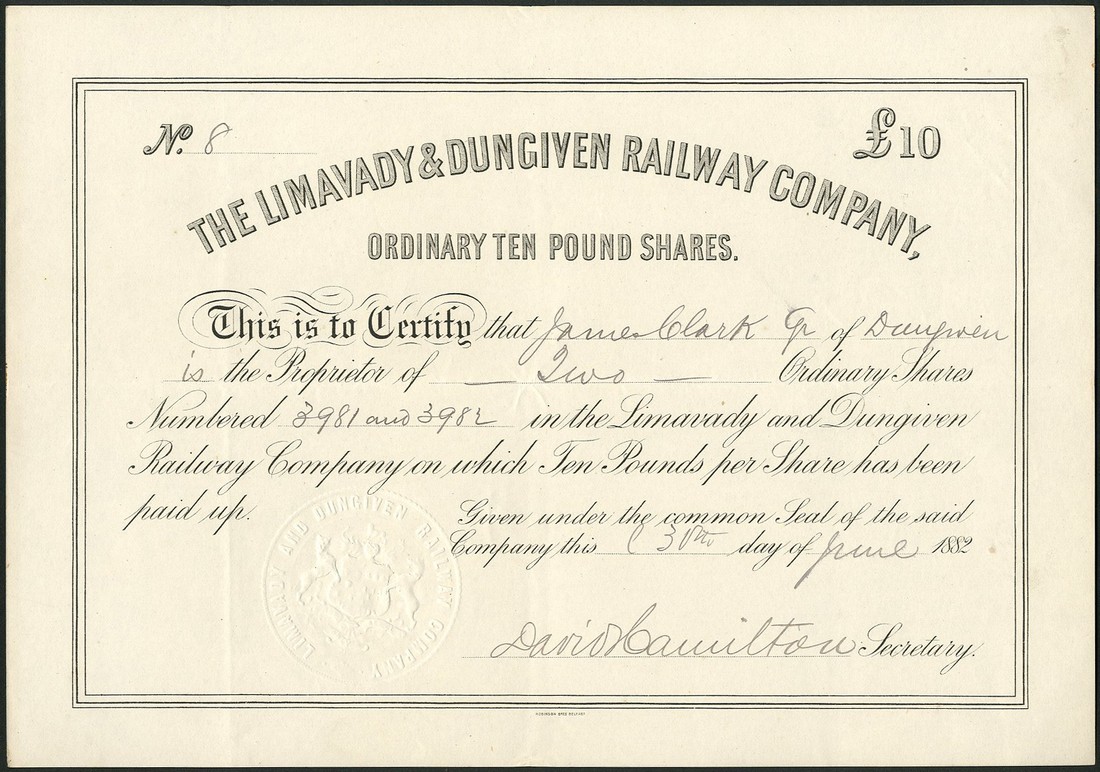 No. 8
£10
THE LIMAVADY & DUNGIVEN RAILWAY COMPANY,
ORDINARY TEN POUND SHARES.
This is to Certify that James Clark Jr of Dungiven
is the Proprietor of — Two — Ordinary Shares
Numbered 3981 and 3982 in the Limavady and Dungiven
Railway Company on which Ten Pounds per Share has been
paid up.
Given under the common Seal of the said
Company this 30th day of June 1882
David Hamilton Secretary.
LIMAVADY AND DUNGIVEN RAILWAY COMPANY